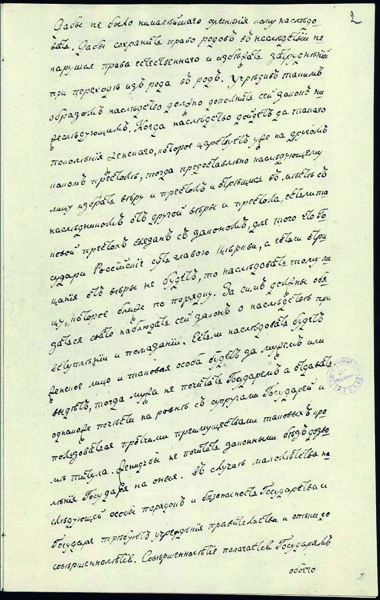 2
Дабы не было нималѣйшаго сомненія кому наслѣдо
вать. Дабы сохранить право родовъ въ наслѣдствіи не
нарушая права естественнаго и избѣжать затрудненій
при переходѣ изъ рода въ родъ. Учредивъ такимъ
образомъ наслѣдство должно дополнить сей законъ ни
жеслѣдующимъ. Когда наслѣдство дойдетъ до такого
поколенія женскаго, которое царствуетъ уже на другомъ
какомъ престолѣ, тогда предоставлено наслѣдующему
лицу избрать вѣру и престолъ и отрещись вмѣстѣ съ
наслѣдникомъ отъ другой вѣры и престола, естьли та
ковой престолъ связанъ съ закономъ, для того что Го
судари Россійскіе суть главою Церкви, а естьли отри
цанія отъ вѣры не будетъ, то наслѣдовать тому ли
цу, которое ближе по порядку. За симъ должны обя
заться свято наблюдать сей законъ о наслѣдствѣ при
вступленіи и помазаніи. Естьли наслѣдовать будетъ
женское лицо и таковая особа будетъ за мужемъ или
выдетъ, тогда мужа не почитать Государемъ, а отдавать
однакожъ почести на ровнѣ съ супругами Государей и
пользоваться прочими преимуществами таковыхъ кро
мѣ титула. Женидьбы не почитать законными безъ дозво
ленія Государя на оныя. Въ случаѣ малолѣтства на
слѣдующей особы порядокъ и безопасность Государства и
Государя требуютъ учрежденія правительства и опеки до
совершеннолѣтія. Совершеннолѣтіе полагается Государямъ
обоего